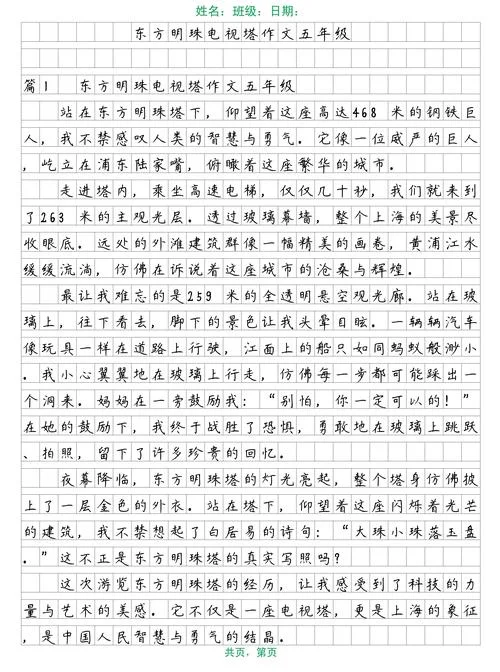 姓名：班级：日期：
东方明珠电视塔作文五年级
篇1 东方明珠电视塔作文五年级
站在东方明珠塔下，仰望着这座高达468 米的钢铁巨
人，我不禁感叹人类的智慧与勇气。它像一位威严的巨人
，屹立在浦东陆家嘴，俯瞰着这座繁华的城市。
走进塔内，乘坐高速电梯，仅仅几十秒，我们就来到
了263 米的主观光层。透过玻璃幕墙，整个上海的美景尽
收眼底。远处的外滩建筑群像一幅精美的画卷，黄浦江水
缓缓流淌，仿佛在诉说着这座城市的沧桑与辉煌。
最让我难忘的是259 米的全透明悬空观光廊。站在玻
璃上，往下看去，脚下的景色让我头晕目眩。一辆辆汽车
像玩具一样在道路上行驶，江面上的船只如同蚂蚁般渺小
。我小心翼翼地在玻璃上行走，仿佛每一步都可能踩出一
个洞来。妈妈在一旁鼓励我：“别怕，你一定可以的！”
在她的鼓励下，我终于战胜了恐惧，勇敢地在玻璃上跳跃
、拍照，留下了许多珍贵的回忆。
夜幕降临，东方明珠塔的灯光亮起，整个塔身仿佛披
上了一层金色的外衣。站在塔下，仰望着这座闪烁着光芒
的建筑，我不禁想起了白居易的诗句：“大珠小珠落玉盘
。”这不正是东方明珠塔的真实写照吗？
这次游览东方明珠塔的经历，让我感受到了科技的力
量与艺术的美感。它不仅是一座电视塔，更是上海的象征
，是中国人民智慧与勇气的结晶。
共页，第页